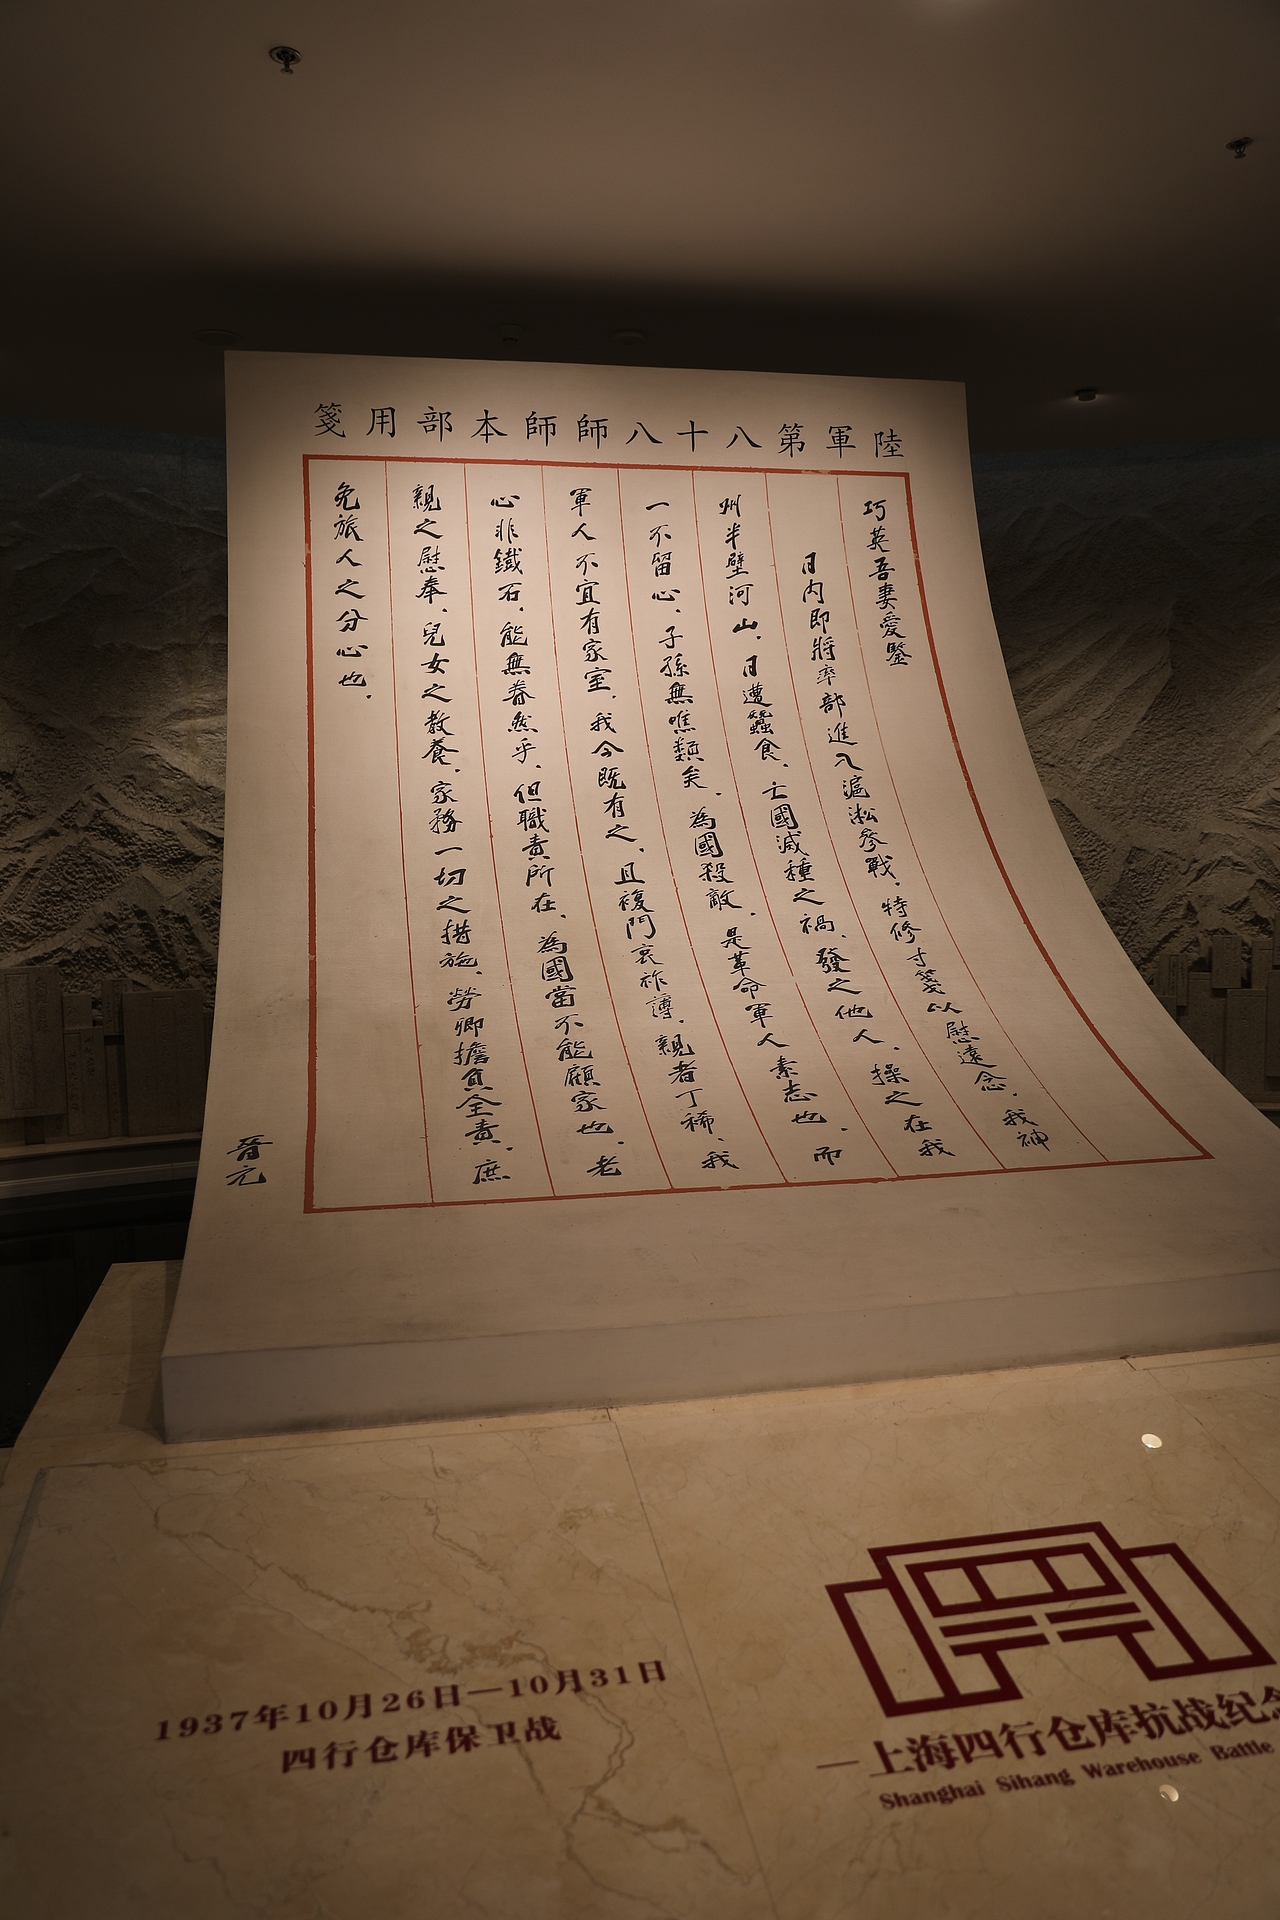 陸軍第八十八師師本部用箋
巧英吾妻愛鑒
日内即將率部進入滬淞參戰．特修寸箋以慰遠念．我神
州半壁河山．日遭蠶食．亡國滅種之禍．發之他人．操之在我
一不留心．子孫無噍類矣．為國殺敵．是革命軍人素志也．而
軍人不宜有家室．我今既有之．且複門衰祚薄．親者丁稀．我
心非鐵石．能無眷然乎．但職責所在．為國當不能顧家也．老
親之慰奉．兒女之教養．家務一切之措施．勞卿擔負全責．庶
免旅人之分心也．
晉元
1937年10月26日—10月31日
四行仓库保卫战
—上海四行仓库抗战纪念
Shanghai Sihang Warehouse Battle